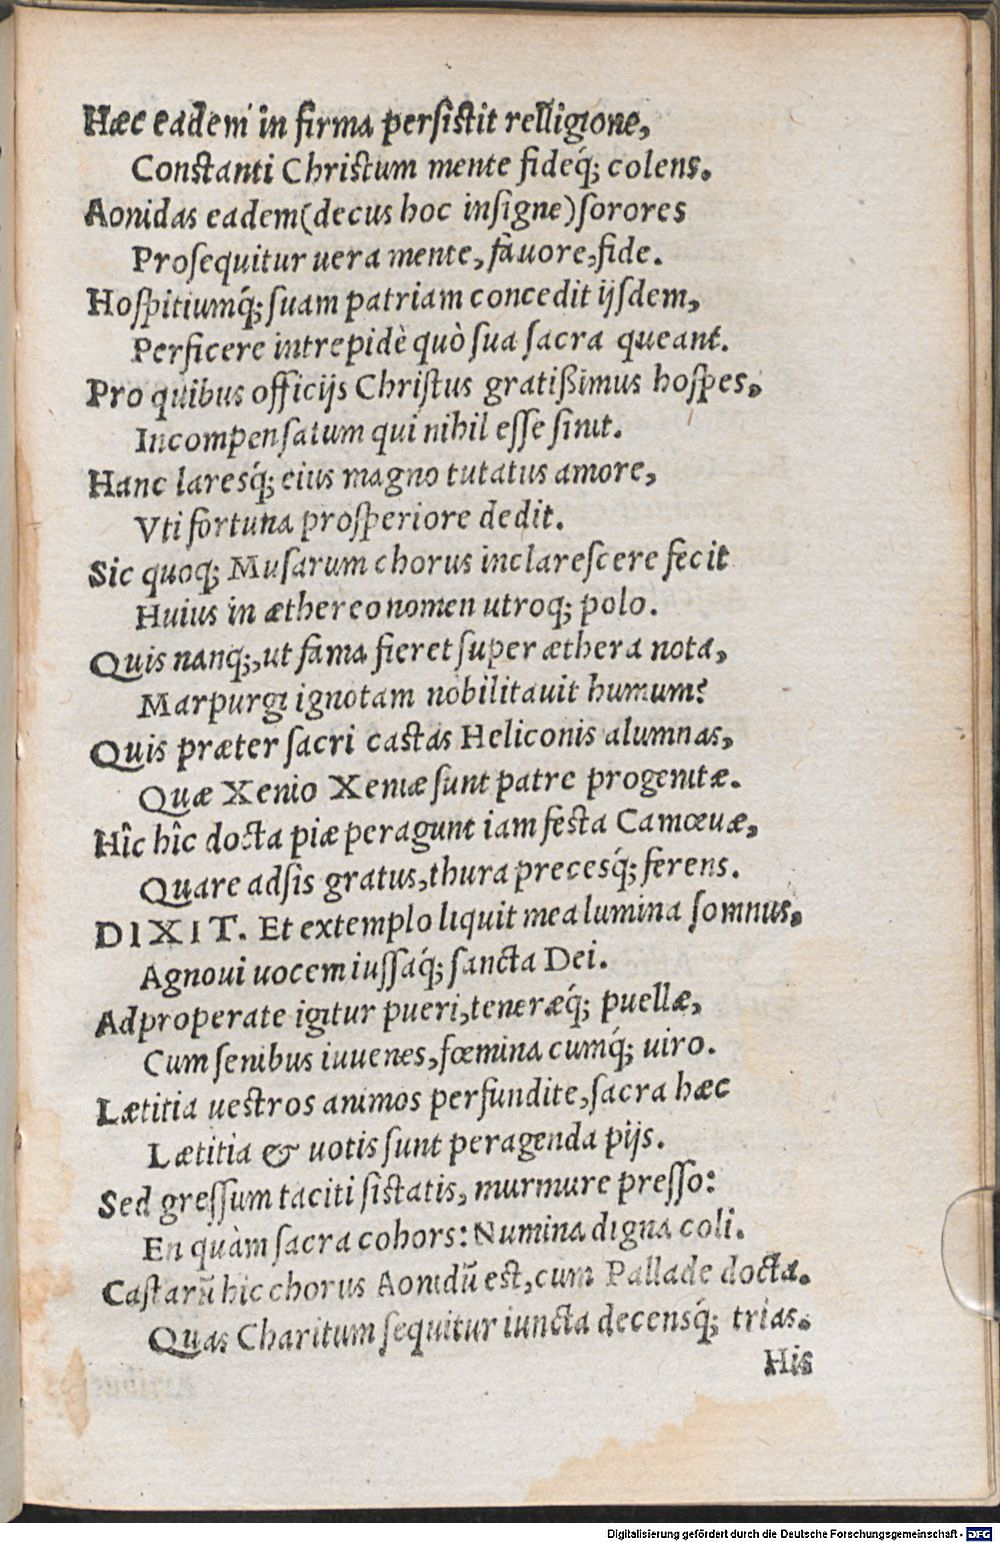 Hæc eadem in firma persistit relligione,
Constanti Christum mente fideq́; colens.
Aonidas eadem(decus hoc insigne)sorores
Prosequitur uera mente, fauore,fide.
Hospitiumq́;suam patriam concedit ijsdem,
Perficere intrepidè quò sua sacra queant.
Pro quibus officijs Christus gratißimus hospes,
Incompensatum qui nihil esse sinit.
Hanc laresq́; eius magno tutatus amore,
Vti fortuna prosperiore dedit.
Sic quoq; Musarum chorus inclarescere fecit
Huius in æthereo nomen utroq; polo.
Quis nanq;,ut fama fieret super æthera nota,
Marpurgi ignotam nobilitauit humum?
Quis præter sacri castas Heliconis alumnas,
Quæ Xenio Xeniæ sunt patre progenitæ.
Hîc hîc docta piæ peragunt iam festa Camœuæ,
Quare adsis gratus,thura precesq́; ferens.
DIXIT. Et extemplo liquit mea lumina somnus,
Agnoui uocem iussaq́; sancta Dei.
Adproperate igitur pueri,teneræq́; puellæ,
Cum senibus iuuenes,fœmina cumq́; uiro.
Lætitia uestros animos perfundite,sacra hæc
Lætitia & uotis sunt peragenda pijs.
Sed gressum taciti sistatis, murmure presso:
En quàm sacra cohors: Numina digna coli.
Castarũ hic chorus Aonidũ est,cum Pallade docta.
Quas Charitum sequitur iuncta decensq́; trias.
His
Digitalisierung gefördert durch die Deutsche Forschungsgemeinschaft - DFG